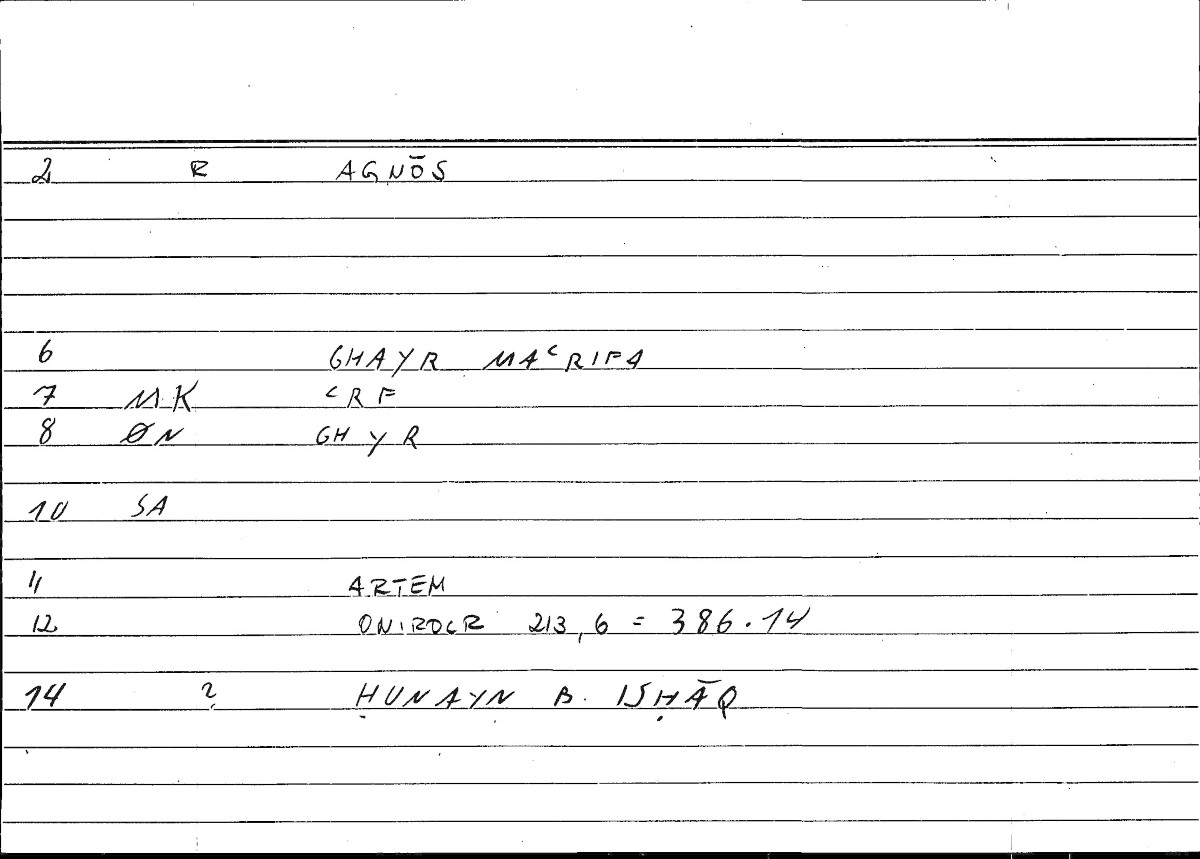 2 R AGNŌS
6 GHAYR MAʿRIFA
7 MK ʿRF
8 ØN GHYR
10 SA
11 ARTEM
12 ONIROCR 213,6 = 386.14
14 ? ḤUNAYN B. ISḤĀQ